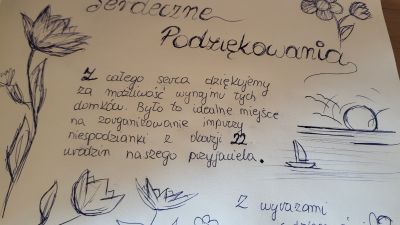 Serdeczne
Podziękowania
Z całego serca dziękujemy
za możliwość wynajmu tych
domków. Było to idealne miejsce
na zorganizowanie imprezy
niespodzianki z okazji 22
urodzin naszego przyjaciela.
Z wyrazami